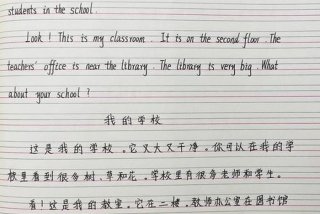 students in the school.
Look ! This is my classroom . It is on the second floor. The
teachers' office is near the library . The library is very big . What
about your school ?
我的学校
这是我的学校。它又大又干净。你可以在我的学
校里看到很多树、草和花。学校里有很多老师和学生。
看！这是我的教室。它在二楼。教师办公室在图书馆